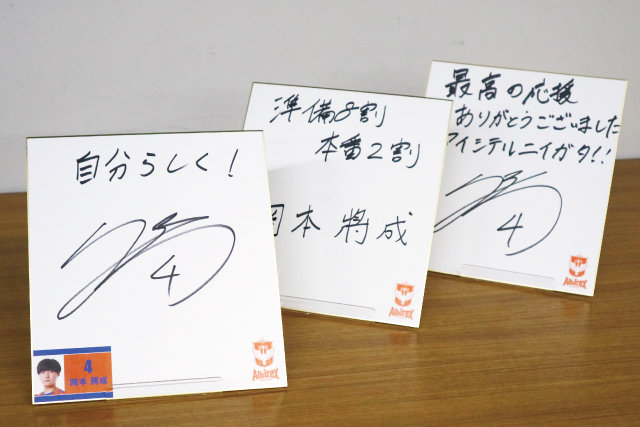 自分らしく!
4
4
岡本 將成
準備8割
本番2割
岡本 將成
ALBIREX
最高の応援
ありがとうございました
アイシテルニイガタ!!
4
ALBIREX